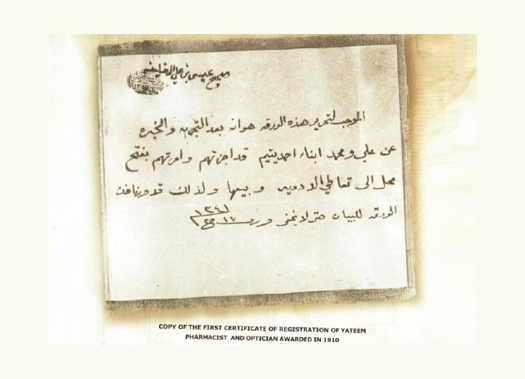 صحيح عيسى بن علي الخليفه
الموجب لتحرير هذه الورقه هو انه بعد التجربه والخبره
عن علي ومحمد ابناء احمد يتيم قد اجزتهم وامرتهم بفتح
محل الى تعاطي الادويه وبيعها ولذلك قد
الورقه للبيان حتى لا يخفى ١٧
١٣٤١
COPY OF THE FIRST CERTIFICATE OF REGISTRATION OF YATEEM
PHARMACIST AND OPTICIAN AWARDED IN 1910